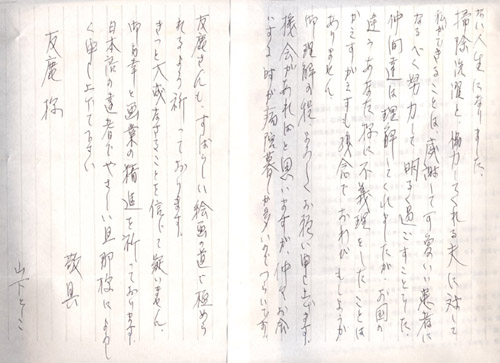 ない人生になりました。
掃除洗濯と協力してくれる夫に対して
私ができることは感謝して可愛いい患者に
なるべく努力して明るく過ごすことでした。
仲間達は理解してくれましたがお国の
違うあなた様に不義理をしたことは
かえすがえすも残念でおわびもしようが
ありません
御理解の程よろしくお願い申し上げます。
機会があればと思いますが、仲々お会
いする時が病院暮が多いのでつらいです。
友鹿さんも、すばらしい絵画の道を極めら
れるよう祈っております。
きっと大成なさることを信じて疑いません。
御多幸と画業の精進を祈っております。
日本語の達者でやさしい旦那様によろし
く申し上げて下さい
敬具
山下
友鹿様